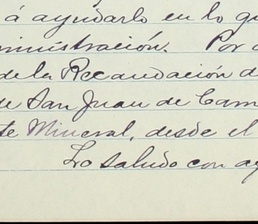 á ayudarlo en lo qu
ministración. Por
de la Recaudación d
de San Juan de Cam
te Mineral, desde el
Lo saludo con a